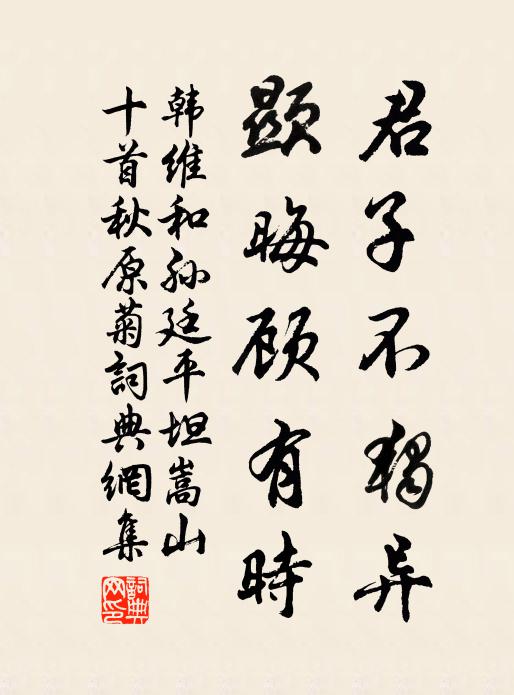 君子不独异
顯晦顾有時
韩维和孙廷平坦嵩山
十首秋原菊詞典網集
詞典網印